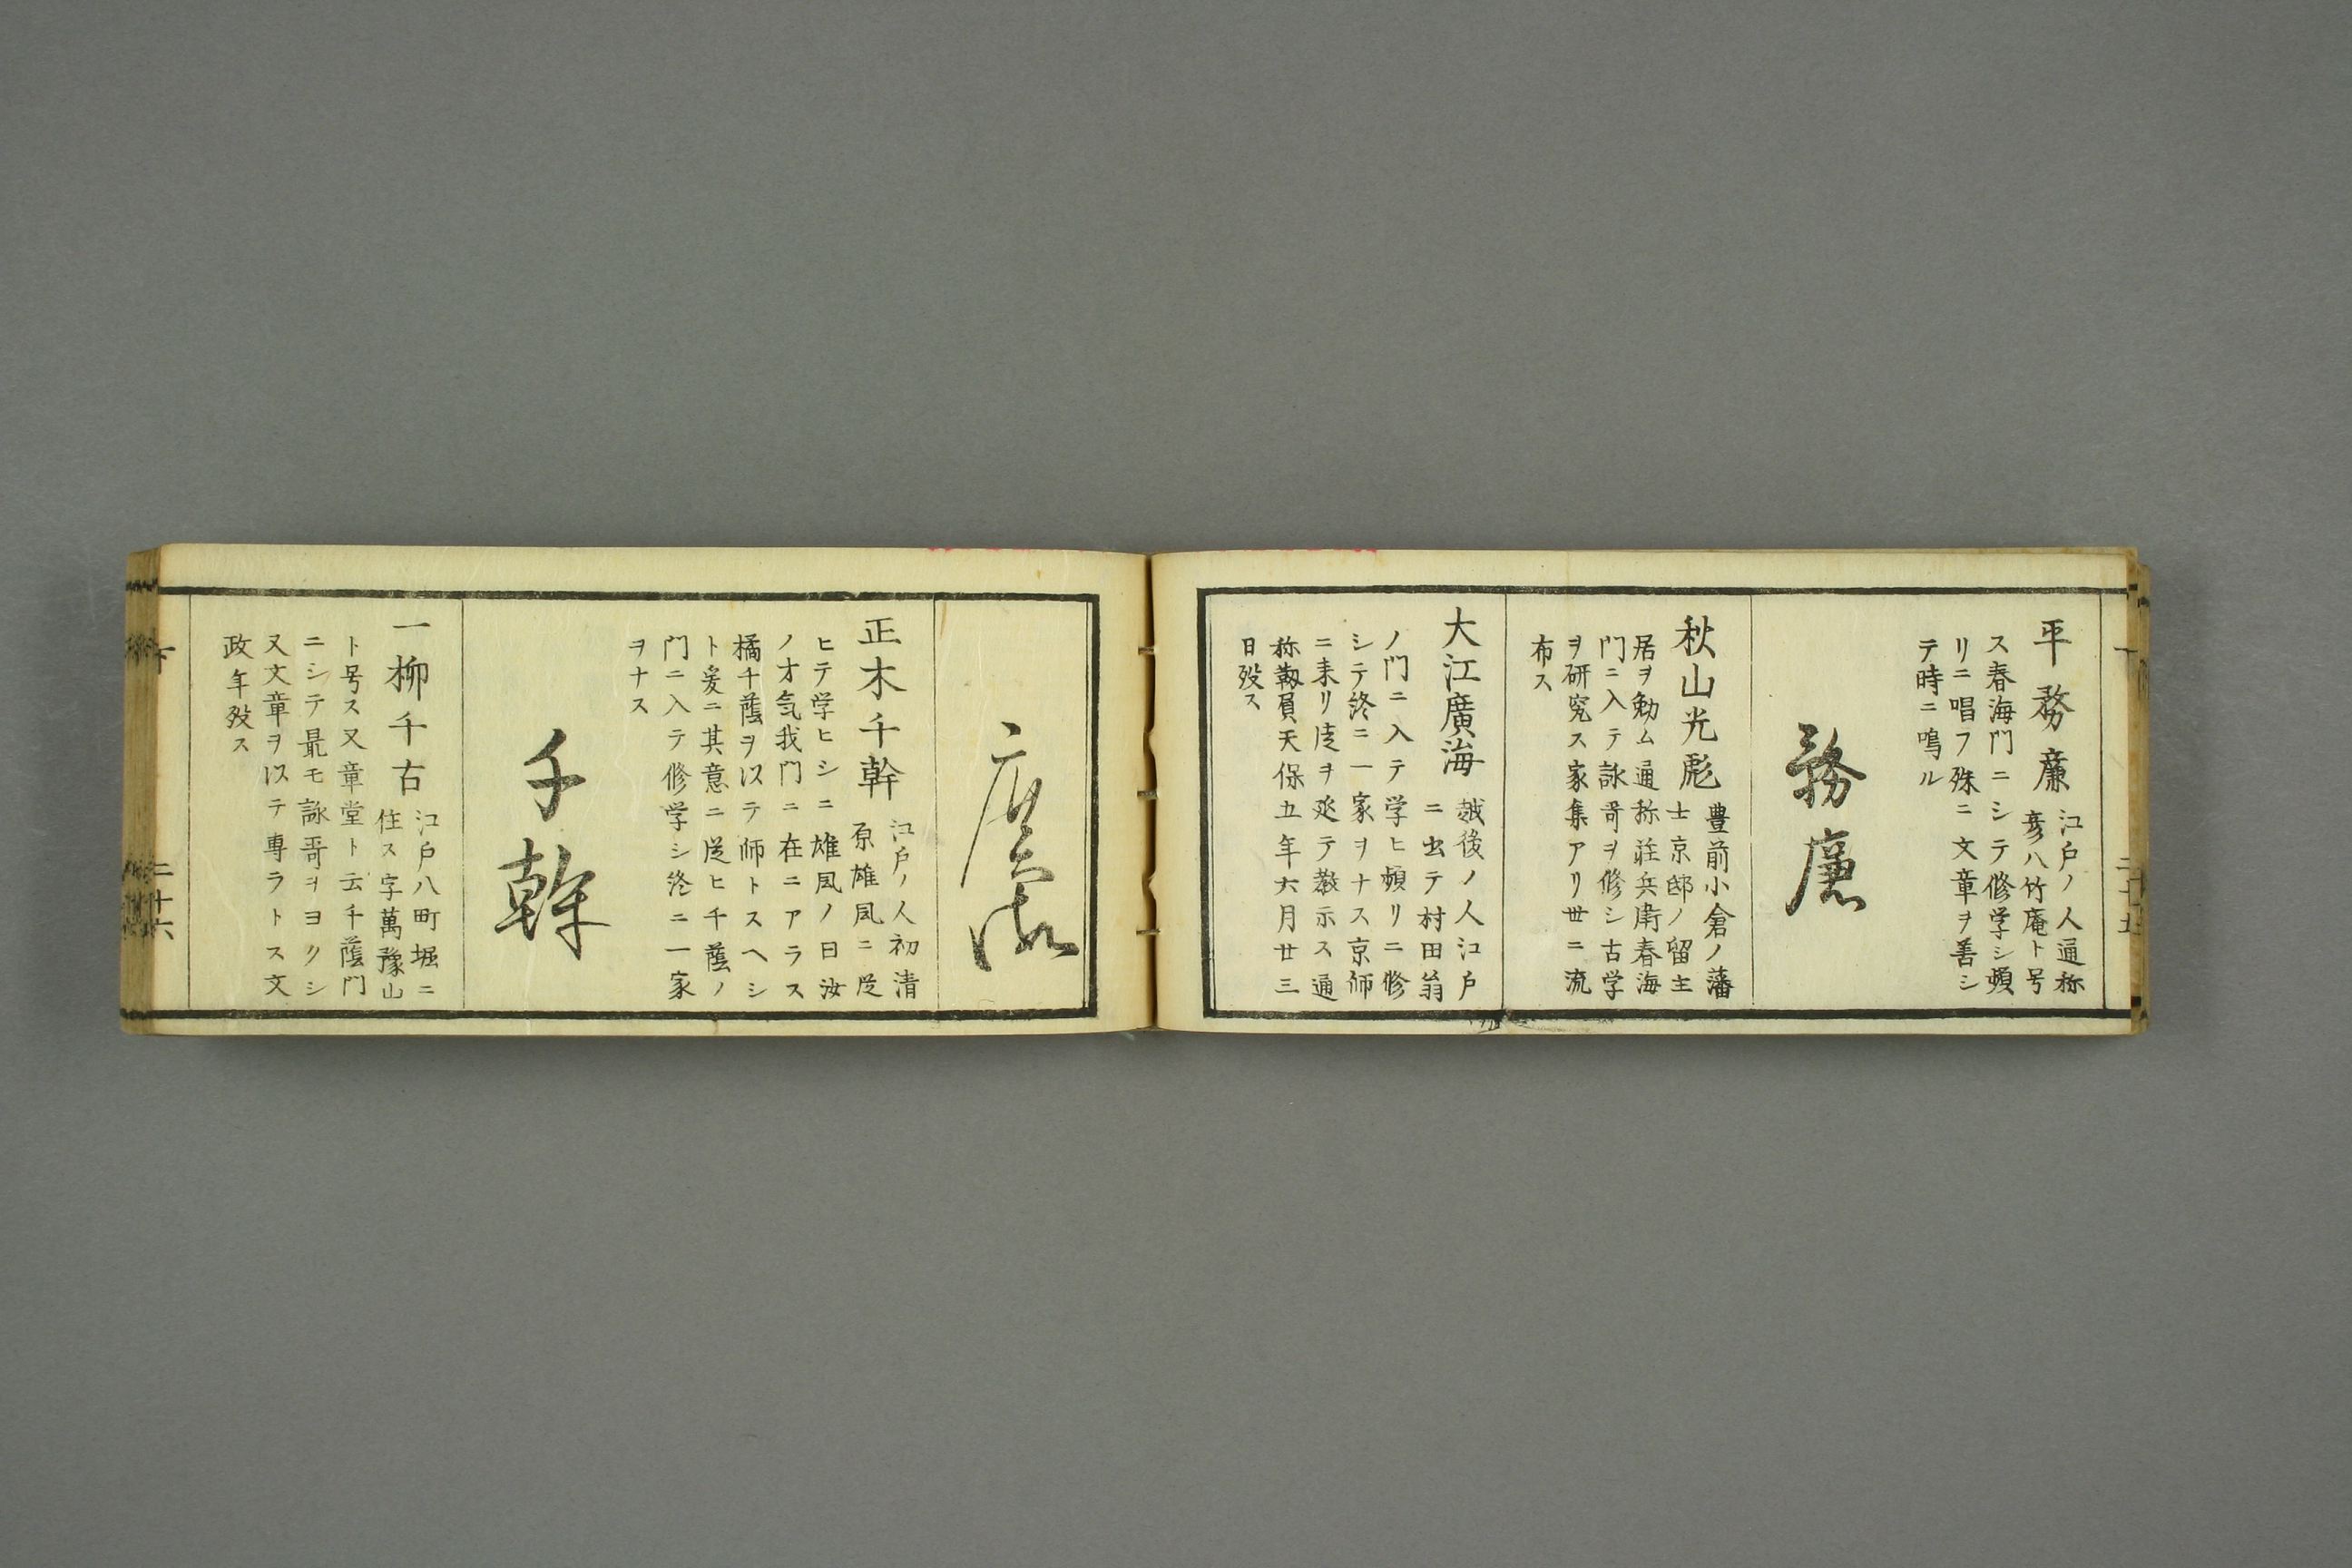 平務廉
江戸ノ人通称
彦八竹庵ト号
ス春海門ニシテ修学シ頻
リニ唱フ殊ニ文章ヲ善シ
テ時ニ鳴ル
務廉
秋山光彪
豊前小倉ノ藩
士京邸ノ留主
居ヲ勉ム通称荘兵衛春海
門ニ入テ詠哥ヲ修シ古学
ヲ研究ス家集アリ世ニ流
布ス
大江廣海
越後ノ人江戸
ニ出テ村田翁
ノ門ニ入テ学ヒ頻リニ修
シテ終ニ一家ヲナス京師
ニ来リ徒ヲ延テ教示ス通
称靱負天保五年六月廿三
日歿ス
廣海
正木千幹
江戸ノ人初清
原雄風ニ従
ヒテ学ヒシニ雄風ノ曰汝
ノ才気我門ニ在ニアラス
橘千蔭ヲ以テ師トスヘシ
ト爰ニ其意ニ従ヒ千蔭ノ
門ニ入テ修学シ終ニ一家
ヲナス
千幹
一柳千古
江戸八町堀ニ
住ス字萬豫山
ト号ス又章堂ト云千蔭門
ニシテ最モ詠哥ヲヨクシ
又文章ヲ以テ専ラトス文
政年歿ス
下
二十六